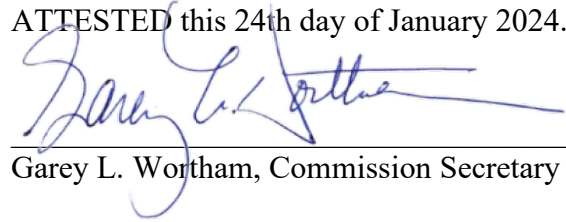 ATTESTED this 24th day of January 2024.
Garey L. Wortham
Garey L. Wortham, Commission Secretary